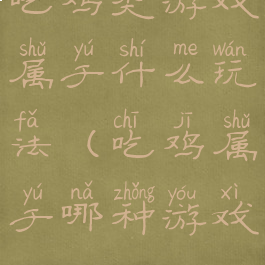 吃鸡类游戏
shǔ yú shí me wán
属于什么玩
fǎ chī jī shǔ
法（吃鸡属
yú nǎ zhǒng yóu xì
于哪种游戏